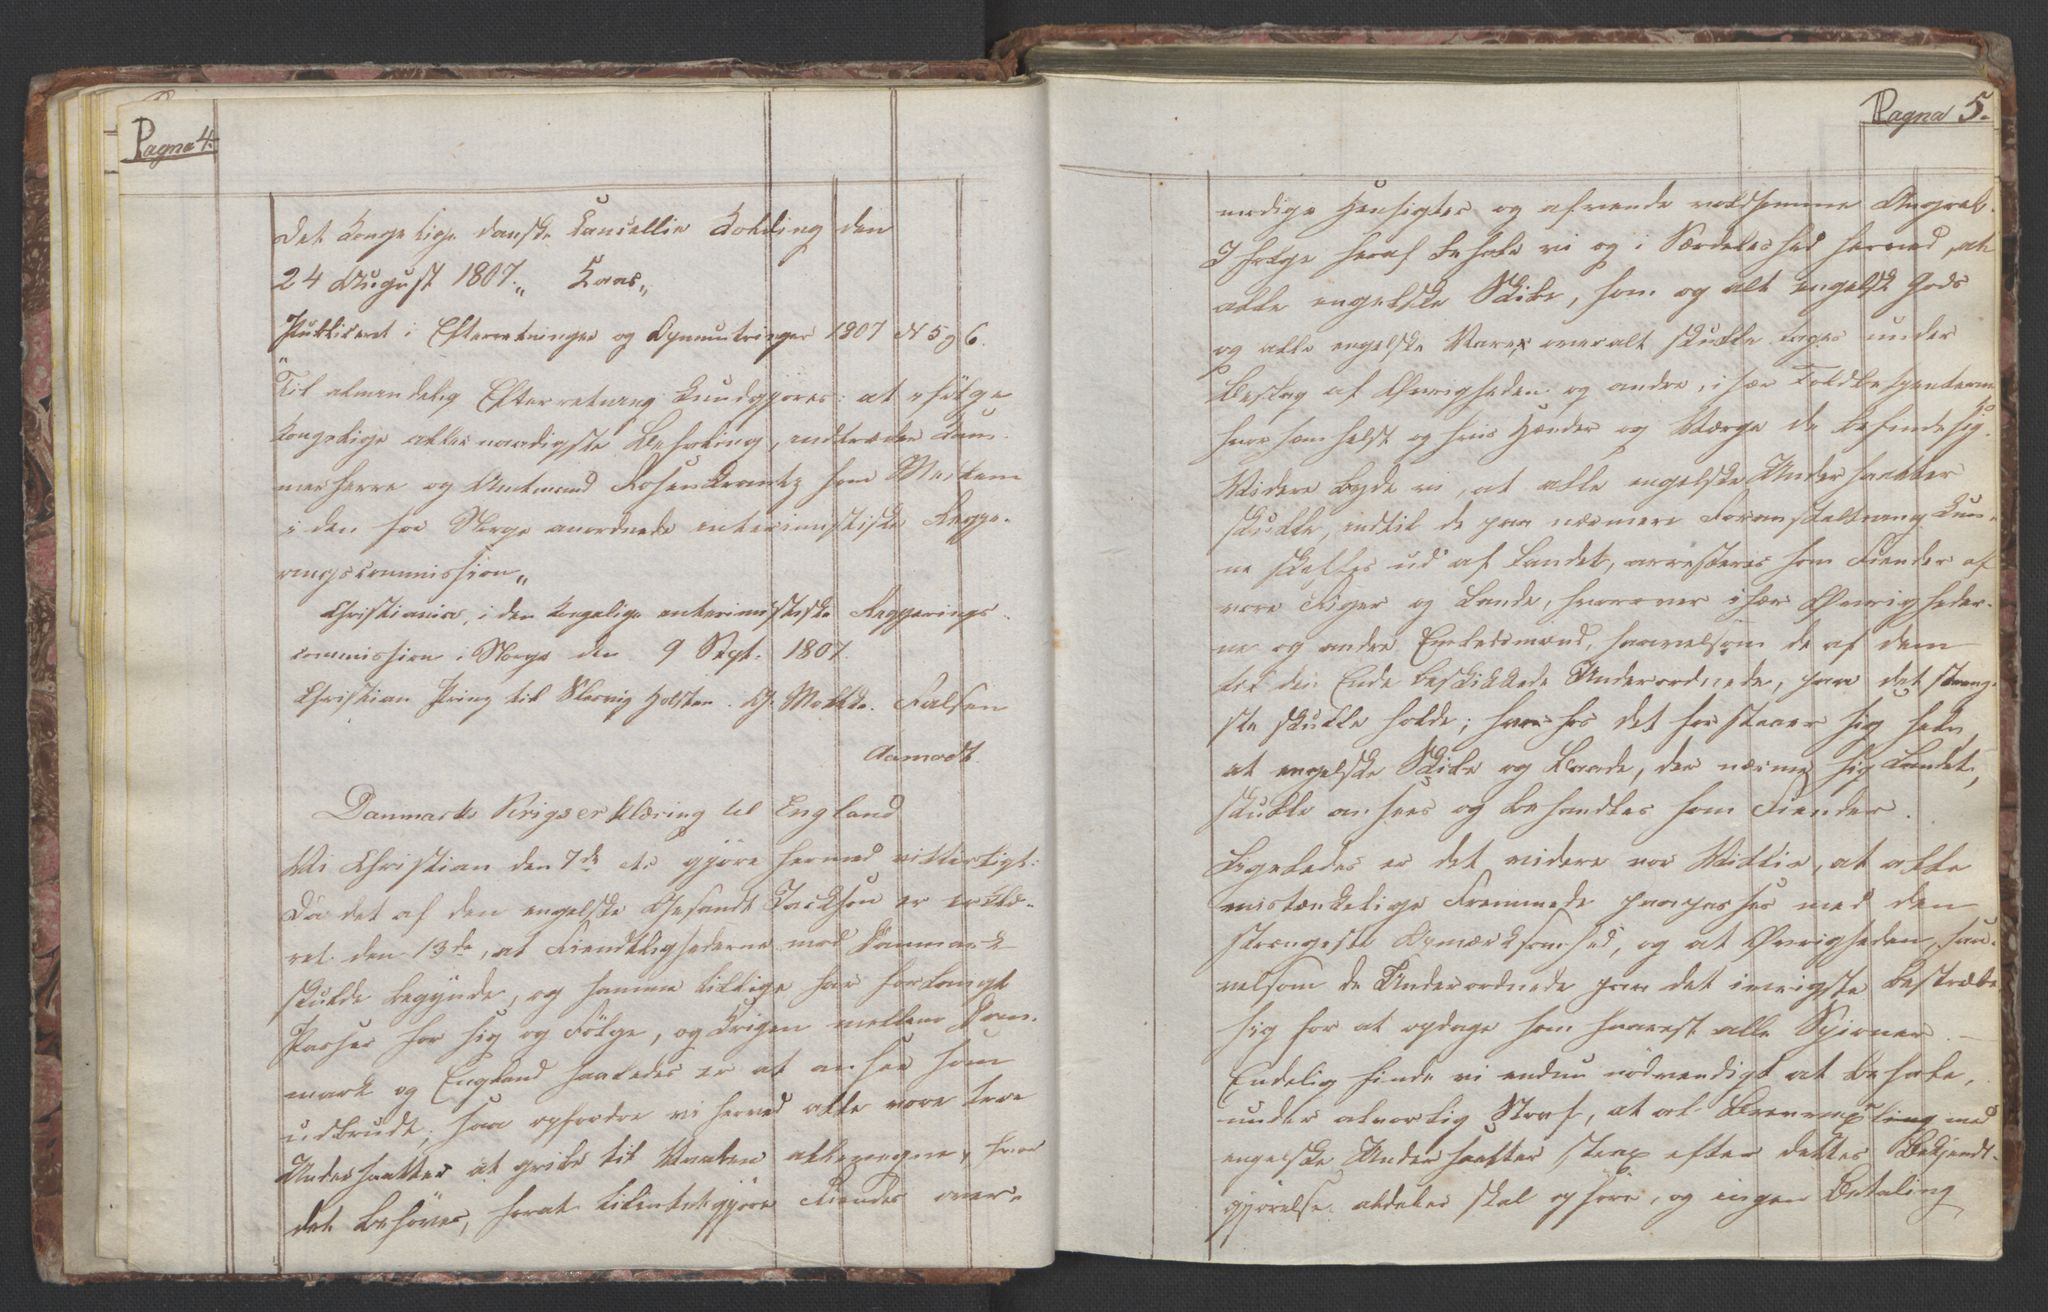 Pagna 4.
Det Kongelige danske Cancellie Kolding den
24 August 1807.„ Kaas„
Publiceret i Efterretninger og Opmuntringer 1807 N 5 og 6.
Til almindelig Efterretning kundgjøres: at ifølge
kongelige allernaadigste Befaling, indtræder Kam-
merherre og Amtmand Rosenkrantz som Medlem
i den for Norge anordnede interimistiske Regje-
ringscommission„
Christiania, i den kongelige interimistiske Regjerings-
commission i Norge den 9 Sept. 1807.
Christian Prinz til Slesvig Holsten. G. Moltke. Falsen
Aamodt
Danmarks Krigserklæring til England
Vi Christian den 7de etc gjøre hermed vitterligt:
Da det af den engelske Gesandt Jackson er erklæ-
ret den 13de, at Fiendtlighederne mod Danmark
skulde begynde, og samme tillige har forlangt
Passer for sig og Følge, og Krigen mellem Dan-
mark og England saaledes er at ansee som
udbrudt; saa opfordre vi herved alle vore troe
Undersaatter at gribe til Vaaben allevegne, hvor
det behøves, forat tilintetgjøre Fiendes over-
Pagna 5.
modige Hensigter og afvende voldsomme Angreb.
I Følge heraf befale vi og i Særdeleshed herved, at
alle engelske Skibe, som og alt engelsk Gods
og alle engelske Varer overalt skulle tages under
Beslag af Øvrigheden og andre, i sær Toldbetjenterne
hvor somhelst og hvis Hænder og Værge de befinde sig.
Videre byde vi, at alle engelske Undersaatter
skulle, indtil de paa nærmere Foranstaltning kun-
ne skaffes ud af Landet, arresteres som Fiender af
vore Riger og Lande, hvorover i sær Øvrigheder-
ne og andre Embedsmænd, saavelsom de af dem
til den Ende beskikkede Underordnede, paa det streng-
ste skulle holde; hvorhos det forstaaer sig selv,
at engelske Skibe og Baade, der nærme sig Landet,
skulle ansees og behandles som Fiender.
Ligeledes er det videre vor Villie, at alle
mistænkelige Fremmede paapasses med den
strængeste Opmærksomhed, og at Øvrigheden, saa-
velsom de Underordnede paa det ivrigste bestræbe
sig for at opdage som snarest alle Spioner. –
Endelig finde vi endnu nødvendigt at befale,
under alvorlig Straf, at al Brevvexling med
engelske Undersaatter strax efter dettes Bekjendt-
gjørelse aldeles skal ophøre, og ingen Betaling